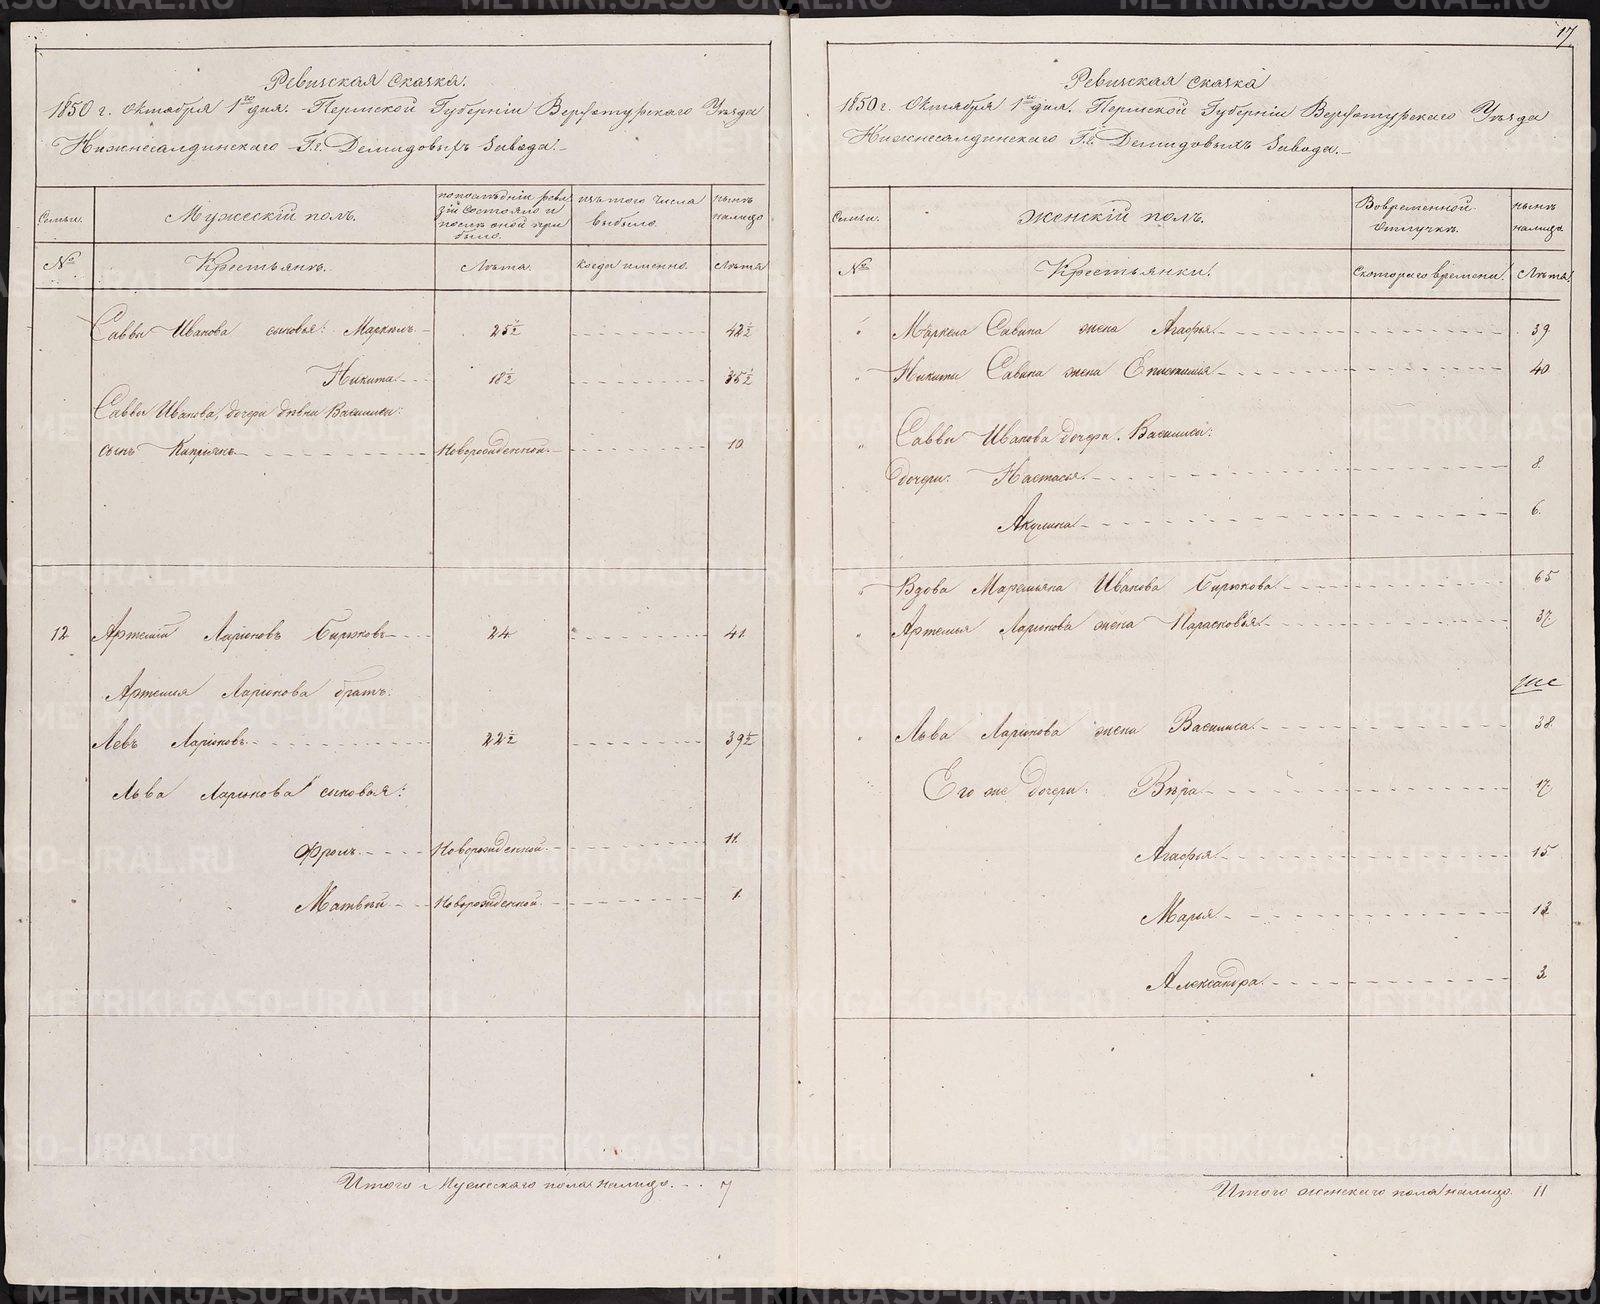 Ревизская сказка.
1850 г. Октября 1го дня. Пермской Губерніи Верхотурскаго Уѣзда
Нижнесалдинскаго Г.г. Демидовыхъ Завода.
Семьи.
Мужескій полъ.
по послѣдній ревизіи состояло и послѣ оной прибыло.
изъ того числа выбыло.
нынѣ налицо
№
Крестьянъ.
Лѣта.
когда именно.
Лѣта
Саввы Иванова сыновья: Маркелъ 25½ 42½
Никита 18½ 35½
Саввы Иванова, дочери дѣвки Василисы:
сынъ Новорожденной 10
12 Артемій Ларіоновъ Бирюковъ 24 41
Артемія Ларіонова братъ:
Левъ Ларіоновъ 22½ 39½
Льва Ларіонова сыновья:
Фролъ Новорожденной 11
Матвѣй Новорожденной 1
Итого Мужескаго пола налицо 7
17
Ревизская сказка
1850 г. Октября 1го дня. Пермской Губерніи Верхотурскаго Уѣзда
Нижнесалдинскаго Г.г. Демидовыхъ Завода.
Семьи.
Женскій полъ.
Во временной отлучкѣ.
нынѣ налицо
№
Крестьянки.
Съ котораго времени.
Лѣта.
Маркела Савина жена Агафья 39
Никиты Савина жена 40
Саввы Иванова дочери Василисы:
дочери: Настасья 8
Акулина 6
Вдова Маремьяна Иванова Бирюкова 65
Артемья Ларіонова жена Парасковья 37
Льва Ларіонова жена Василиса 38
Его же дочери: Вѣра 17
Агафья 15
Марья 13
Александра 3
Итого женскаго пола налицо 11
METRIKI.GASO-URAL.RU